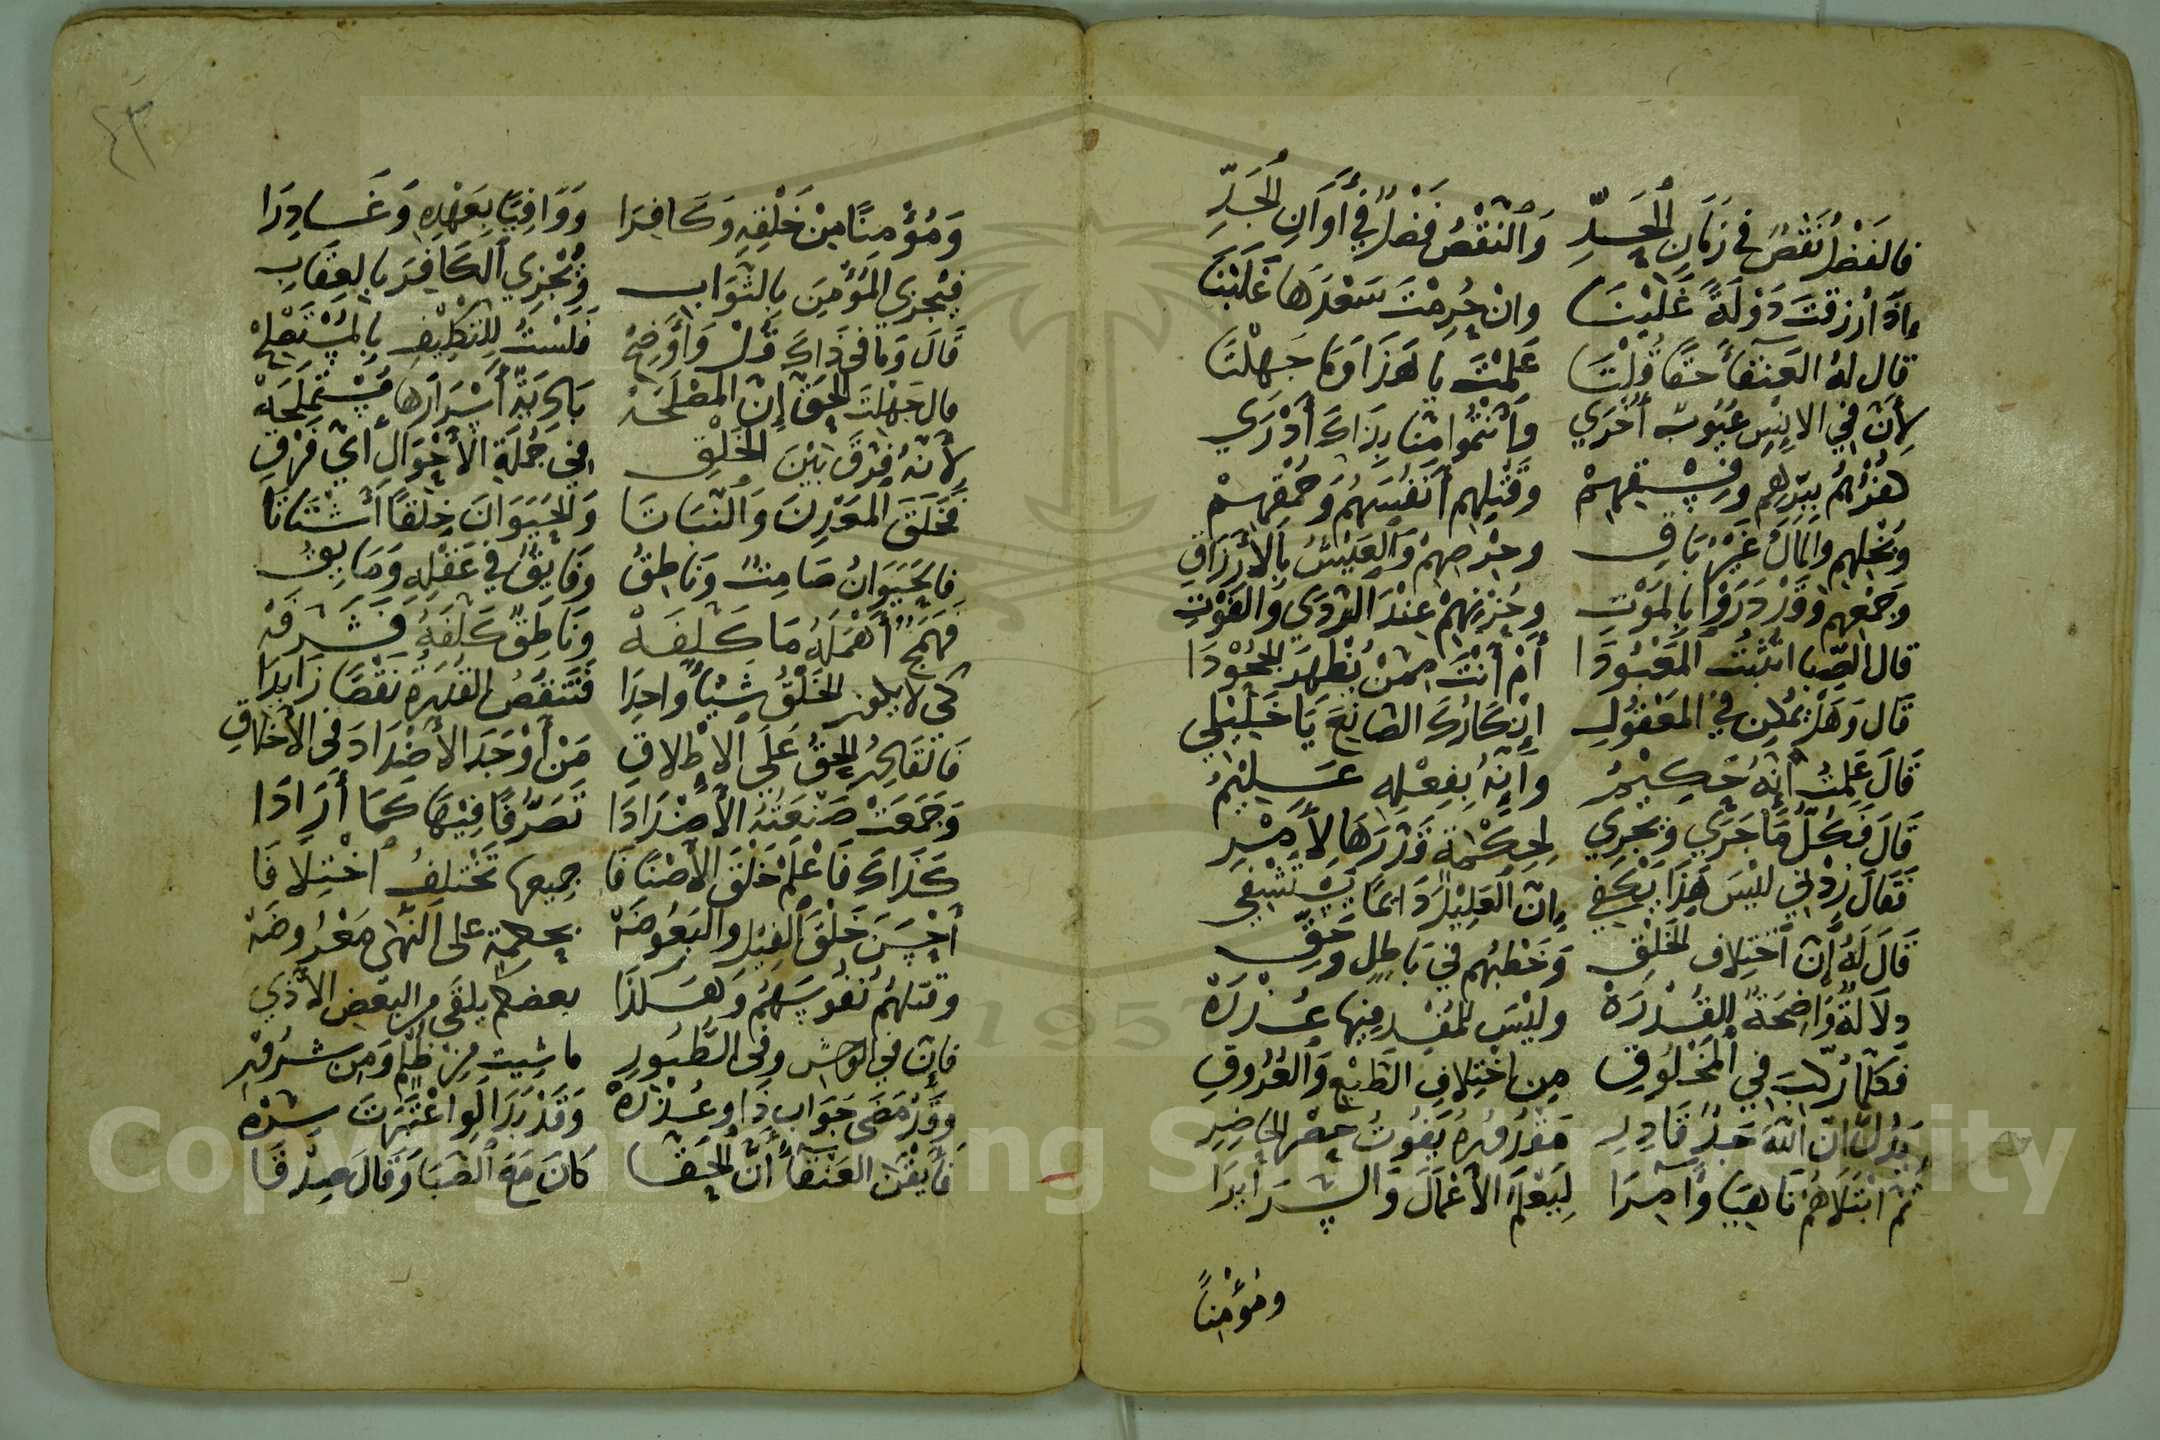 فالفَضْلُ نَقْصٌ فِي زَمَانِ الجَدِّ وَالنَّقْصُ فَضْلٌ فِي أَوَانِ الجَدِّ
إِذَا رُزِقْتَ دَوْلَةً غَلَبْتَا وان حُرِمْتَ سَعْدَهَا غُلِبْتَا
قال لهُ العَنقَا أحَقًّا قُلْتَا عَلِمْتَ يا هَذَا وَمَا جَهِلْتَا
لِأَنَّ فِي الانسِ عُيُوبٌ أُخْرَى وَأَنْتُمُوا مِنَّا بِذَاكَ أَدْرَى
وقَتْلِهِم أَنفُسَهُم وَحُمْقِهِمْ
وَبُخْلِهِم وَالمَالُ غَيْرُ بَاقِ وحِرْصِهِمْ وَالعَيْشُ بِالأَرْزَاقِ
وجَمْعِهِم وَقَدْ دَرَوْا بِالمَوْتِ وحُزْنِهِمْ عِنْدَ الرَّدَى وَالفَوْتِ
قال الصَّبا اتُثْبِتُ المَعْبُودَا أَمْ أَنْتَ مِمَّنْ يُظْهِرُ الجُحُوْدَا
قَالَ وَهَلْ يُمْكِنُ فِي المَعْقُولِ إِنْكَارُكَ الصَّانِعَ يَا خَلِيْلِي
قَالَ عَلِمْتُ أَنَّهُ حَكِيْمُ وأَنَّهُ بِفِعْلِهِ عَلِيْمُ
قَالَ فَكُلُّ مَا جَرَى وَيَجْرِي لِحِكْمَةٍ قَدَّرَهَا لِأَمْرِ
فَقَالَ زِدْنِي لَيْسَ هَذَا يَكْفِي إِنَّ العَلِيْلَ دَائِمًا يَسْتَشْفِي
قَالَ لَهُ إِنَّ اخْتِلَافَ الخَلْقِ وَخَطْبُهُم فِي بَاطِلٍ وَحَقِّ
دِلَالَةٌ وَاضِحَةٌ لِلقُدْرَةْ وليْسَ لِلمُفْسِدِ فِيهَا عُذْرَةْ
فَكلَّمَا رُكِّبَ فِي المَخْلُوقِ مِن اخْتِلَافِ الطَّبْعِ وَالعُرُوقِ
يَدُلُّ انَّ اللهَ جَدُّ قَادِرِ مَقْدُورُهُ يَفُوتُ حِصْرَ الحَاصِرِ
ثُمَّ ابْتَلَاهُمْ نَاهِيًا وَآمِرَا لِيَعْلَمَ الأَعْمَالَ وَالسَّرَائِرَا
ومُؤْمِنًا
٤٣
وَمُؤْمِنًا مِنْ خَلْقِهِ وَكَافِرَا وَوَافِيًا بِعَهْدِهِ وَغَادِرَا
فيُجْزِي المُؤْمِنَ بالثَّوَابِ وَيُجْزِي الكَافِرَ بالعِقَابِ
قَالَ وَمَا فِي ذَاكَ قُلْ وَأَوْضِحْ فَلَسْتُ لِلتَّكْلِيْفِ بِالمُسْتَصْلِحْ
قال جَهِلْتَ الحَقَّ إِنَّ المَصْلَحَةْ بَادِيَةٌ أَسْرَارُهَا مُسْتَمْلَحَةْ
لأَنَّهُ فَرَّقَ بَيْنَ الخَلْقِ فِي جُمْلَةِ الأَحْوَالِ أَيَّ فَرْقِ
فَخَلَقَ المَعْدِنَ وَالنَّبَاتَا وَالحَيَوَانَ خَلْقًا أَشْتَاتَا
فالحَيَوَانُ صَامِتٌ وَنَاطِقُ وَفَائِقٌ فِي عَقْلِهِ وَمَائِقُ
فَهَمَجٌ أَهْمَلَهُ مَا كَلَّفَهْ وَنَاطِقٌ كَلَّفَهُ فَشَرَّفَهْ
كَي لَا يكون الخَلْقُ شَيْأً وَاحِدَا فَتَنقُصُ القُدْرَةُ نَقْصًا زَايِدَا
مَنْ أَوْجَدَ الأَضْدَادَ فِي الأَخْلَاقِ
وَجَمَعَتْ صَنْعَتُهُ الأَضْدَادَا تَصَرُّفًا فِيْهَا كَمَا أَرَادَا
كَذَاكَ فَاعْلَمْ خَلْقَ الأَصْنَافَا جميعها تَخْتَلِفُ اخْتِلَافَا
أَحْسَنَ خَلْقَ الفِيْلِ والبَعُوضَةْ بحكمة على النُّهَى مَعْرُوضَةْ
وقتلهُم نُفُوسَهُم وَهَكَذَا بعضكم يلقى من البعض الأَذَى
فإن في الوَحْشِ وَفِي الطُّيُورِ ما شِيتَ مِنْ ظُلْمٍ وَمِن شُرُورِ
وَقَدْ مَضَى جَوَابُ ذَا وعُذْرُهْ وَقَدْ بَدَا لَو اعْتَبَرْتَ سِرُّهْ
فأَيْقَنَ العَنقَاءُ أَنَّ الحَقَّا كَانَ مَعَ الصَّبَا وَقَالَ صِدْقَا